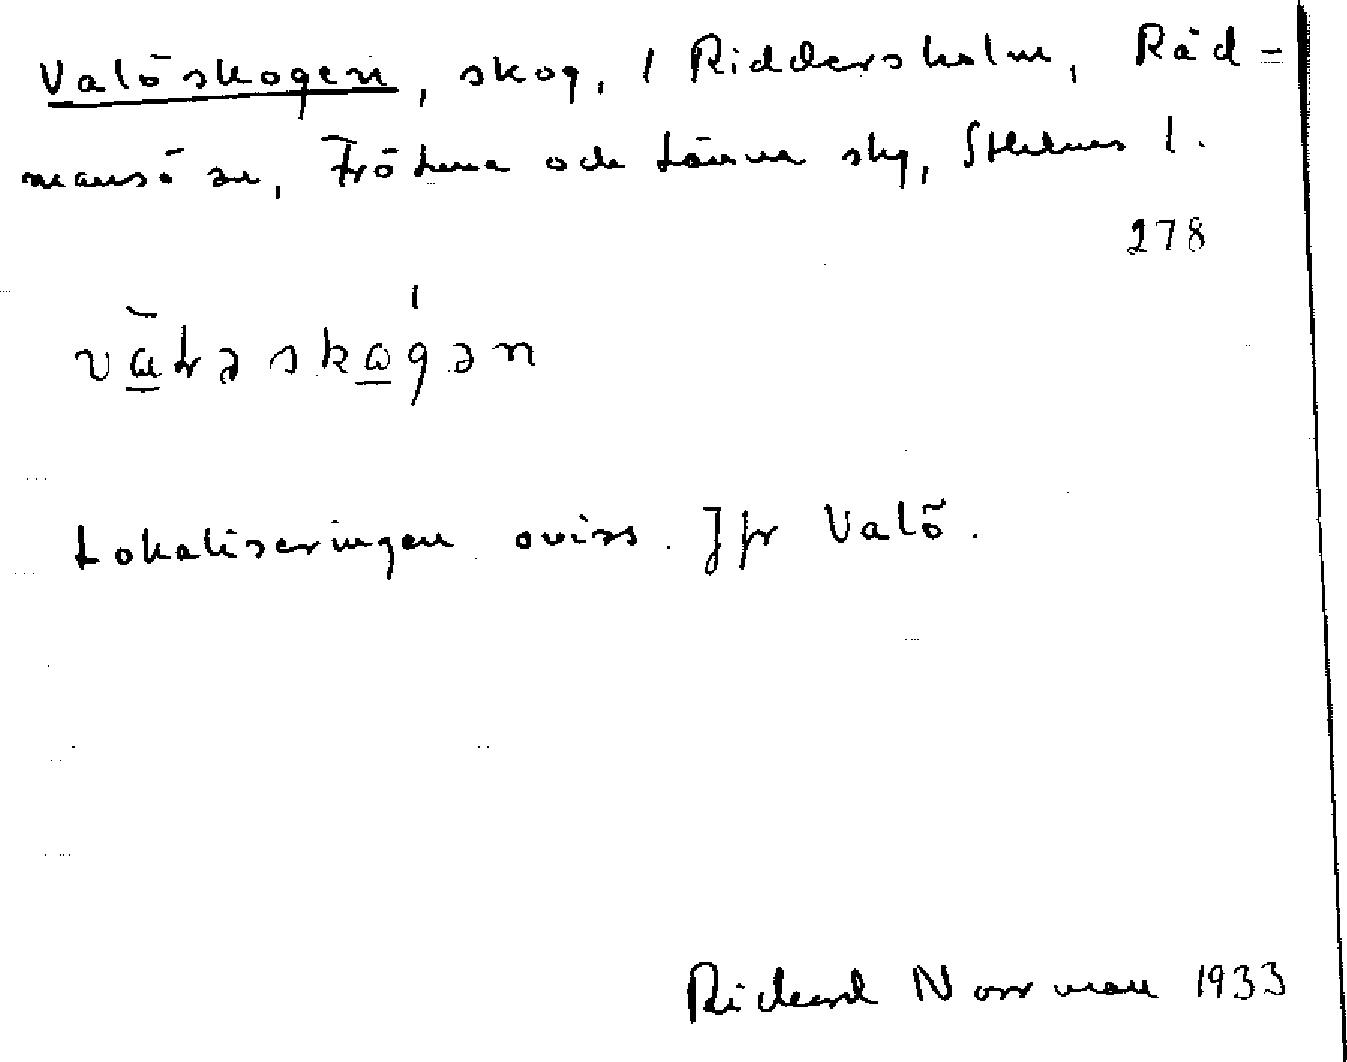 Valöskogen, skog, 1 Riddersholm, Råd=
mansö sn, Frötuna och Länna skg, Sthlms l.
278
vàlɘskógɘn
Lokaliseringen oviss. Jfr Valö.
Rickard Norrman 1933